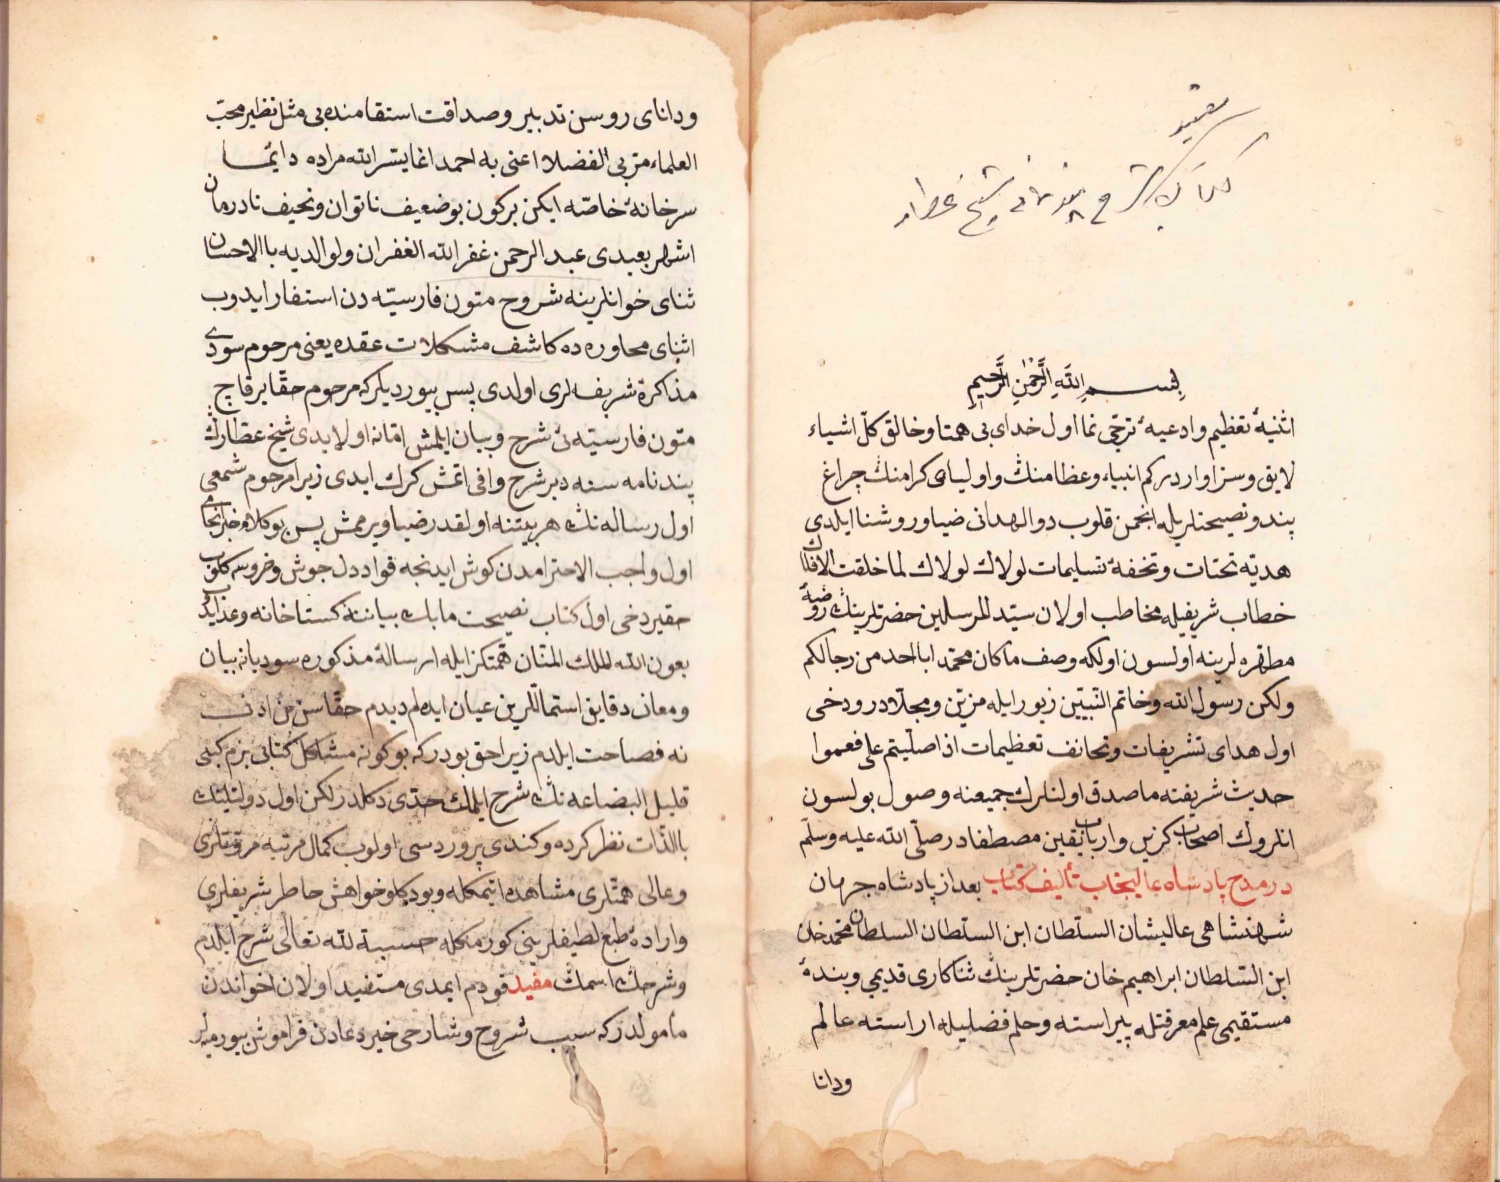 مفيد
كتاب شرح پند نامهٔ شيخ عطار
بسم الله الرحمن الرحيم
اثنيهٔ تعظيم وادعيهٔ ترجّى نما اول خداى بى همتا وخالق كلّ اشياء
لايق وسزاواردركم انبياء وعظامنك واولياى كرامنك چراغ
پند ونصيحتلريله انجمن قلوب ذوالهدانى ضياوروشنا ايلدى
هديهٔ تحيّات وتحفهٔ تسليمات لولاك لولاك لما خلقت الافلاك
خطاب شريفيله مخاطب اولان سيّد المرسلين حضرتلرينك روضهٔ
مطهره لرينه اولسون اولكه وصف ماكان محمّد ابا احد من رجالكم
ولكن رسول الله وخاتم النّبيّين زيورايله مزيّن ومجلّادر ودخى
اول هداى تشريفات وتحائف تعظيمات اذا صلّيتم علىّ فعمموا
حديث شريفنه ماصدق اولنلرك جميعنه وصول بولسون
انلروك اصحاب كزين وارباب يقين مصطفادر صلّى الله عليه وسلّم
در مدح پادشاه عاليجناب تأليف كتاب بعد از پادشاه جهان
شهنشاهى عاليشان السلطان ابن السلطان السلطان محمّد خان
ابن السلطان ابراهيم خان حضرتلرينك ثناكارى قديمى وبندهٔ
مستقيمى علم معرفتله پيراسته وحلم فضليله اراسته عالم
ودانا
وداناى روسن تدبير وصداقت استقامتده بى مثل نظير محبّ
العلماء مربى الفضلا اعنى به احمد اغا يسّر الله مراده دائما
سرخانهٔ خاصّه ايكن بركون بوضعيف ناتوان ونحيف نادرمان
اشهر بعبدى عبد الرحمن غفر الله الغفران ولوالديه باالاحسان
ثناى خوانلرينه شروح متون فارسيّه دن استفسار ايدوب
اثناى محاوره ده كاشف مشكلات عقده يعنى مرحوم سودى
مذاكرهٔ شريفه لرى اولدى پس بيورديلركه مرحوم حقّا برقاچ
متون فارسيّه ئى شرح وبيان ايلمش امّا نه اولايدى شيخ عطارك
پندنامه سنه دبر شرح وافى اتمش كرك ايدى زيرا مرحوم شمعى
اول رساله نك هر بيتنه اولقدر ضيا ويرممش پس بوكلام خير انجامى
اول واجب الاحترامدن كوش ايدنجه فواد دل جوش وخروشه كلوب
حقيردخى اول كتاب نصيحت مابك بياننه كستاخانه وعد ايدوب
بعون الله الملك المنّان همّتكز ايله ارسالهٔ مذكوره سوديانه بيان
ومعان دقايق استماللّرين عيان ايده لم ديدم حقّا سن من اذنت
نه فصاحت ايلدم زيرا حق بودركه بوكونه مشاكل كتابى بزم كبى
قليل البضاعه نك شرح ايلمك حدّى دكلدر لكن اول دولتلينك
باالذّات نظر كرده وكندى پرورده سى اولوب كمال مرتبه مروّتلرى
وعالى همّتلرى مشاهده اتمكله وبودكلو خواهش خاطر شريفلرى
وارادهٔ طبع لطيفلرينى كورمكله حسبية لله تعالى شرح ايلدم
وشرحك اسمك مفيد قودم ايمدى مستفيد اولان اخواندن
مامولدركه سبب شروح وشارحى خير دعادن فراموش بيورميه لر